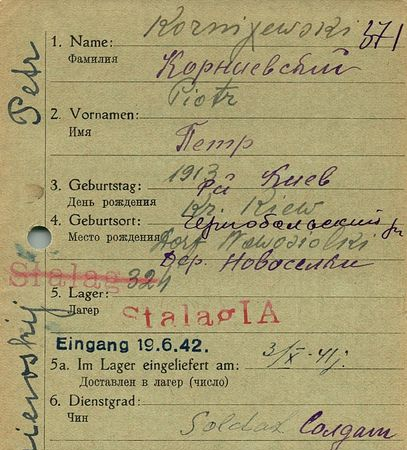 Kornijewski
371
1. Name:
Фамилия
Корниевский
Piotr
2. Vornamen:
Имя
Петр
1913
3. Geburtstag:
День рождения
Киев
Kr. Kiew
4. Geburtsort:
Место рождения
Dorf Nowosiolki
Stalag 324
Дер. Новоселки
5. Lager:
Лагер
Stalag IA
Eingang 19.6.42.
5a. Im Lager eingeliefert am:
Доставлен в лагер (число)
3/X-41j.
6. Dienstgrad:
Чин
Soldat Солдат
Petr